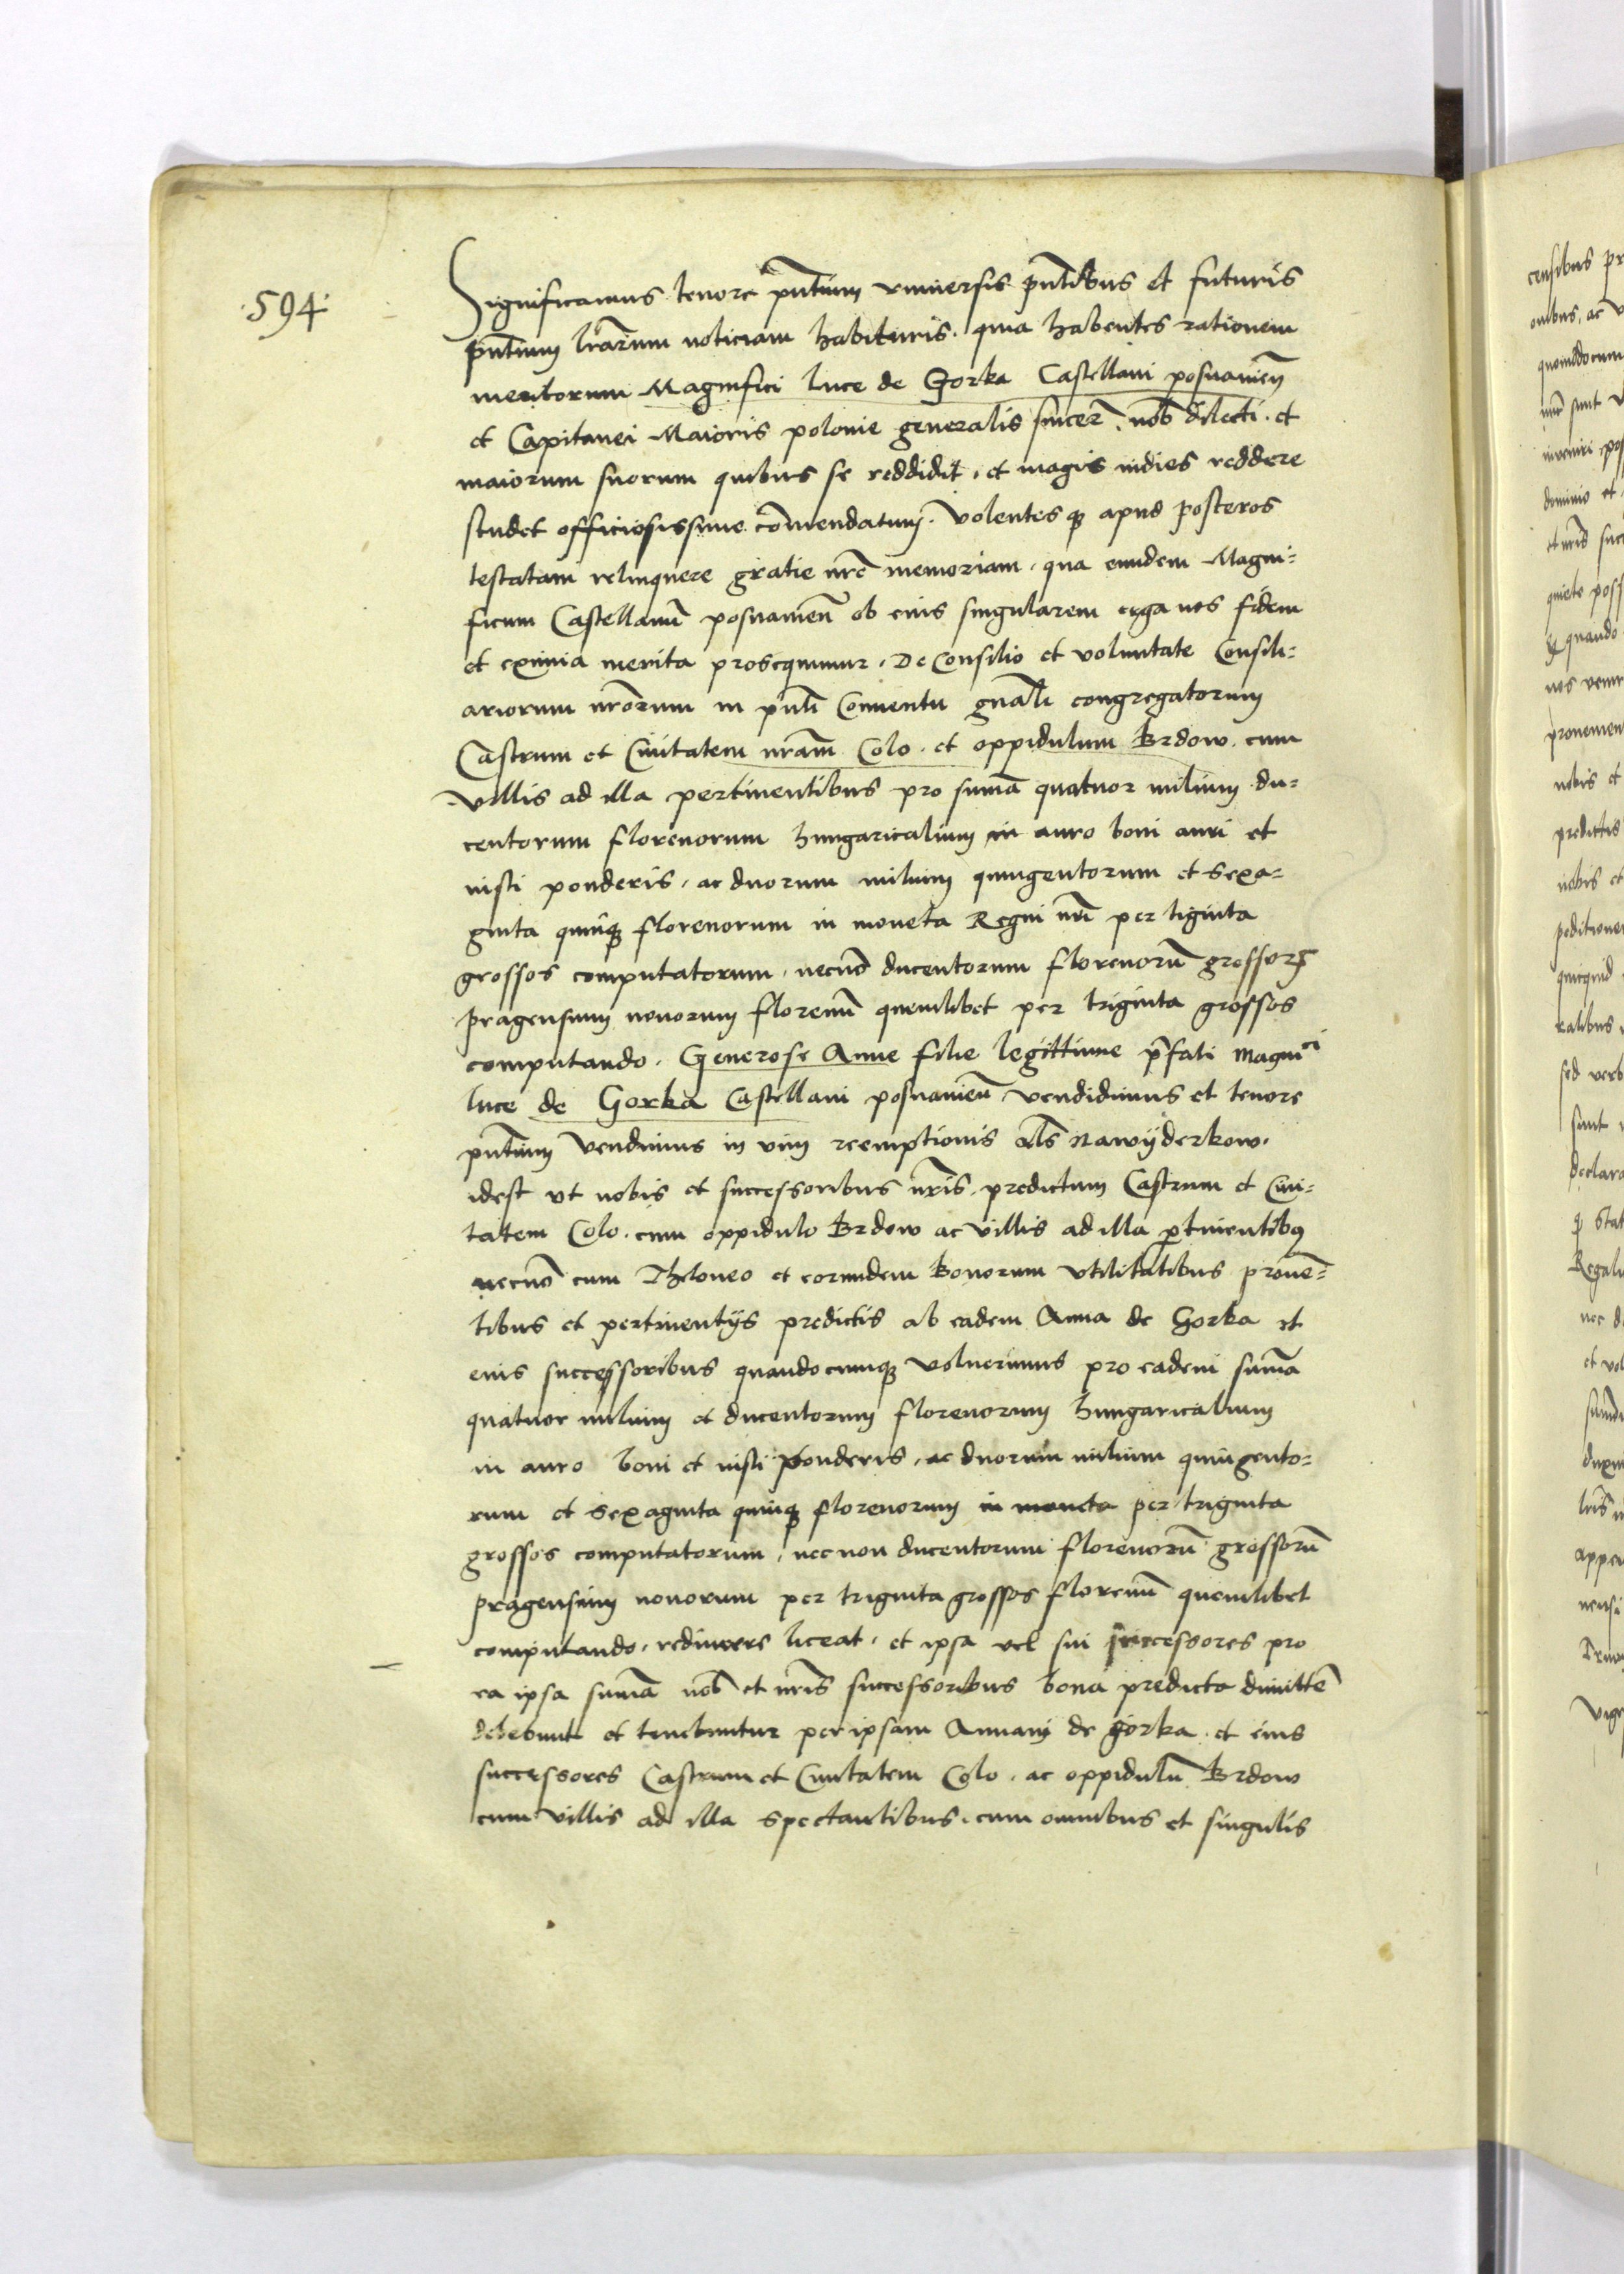 ·594·
Significamus tenore pñtium vniuersis pñtibus et futuris
pñtium lrãrum noticiam habituris. quia habentes rationem
meritorum Magnifici Luce de Gorka Castellani posnanieñ
et Capitanei Maioris polonie generalis sincere nob̃ dilecti. et
maiorum suorum quibus se reddidit, et magis indies reddere
studet officiosissime com̃endatum. Volentesq; apud posteros
testatam relinquere gratie nr̃e memoriam, qua eundem Magni=
ficum Castellanũ posnanieñ ob eius singularem erga nos fidem
et eximia merita prosequimur. De Consilio et voluntate Consili=
ariorum nr̃orum in pñti Conuentu gnãli congregatorum
Castrum et Ciuitatem nr̃am Colo. et oppidulum Brdow. cum
villis ad illa pertinentibus pro sum̃a quatuor milium du=
centorum florenorum hungaricalium in auro boni auri et
iusti ponderis, ac duorum milium quingentorum et sexa=
ginta quinq; florenorum in moneta Regni nr̃i per triginta
grossos computatorum, necnõ ducentorum florenorũ grossorꝝ
pragensium nouorum florenũ quemlibet per triginta grossos
computando. Generose Anne filie legittime p̃fati Magnici
Luce de Gorka Castellani posnanieñ vendidimus et tenore
pñtium vendimus in vim reemptionis al̃s nawÿderkow.
idest vt nobis et successoribus nr̃is predictum Castrum et Ciui=
tatem Colo. cum oppidulo Brdow ac villis ad illa ptinentibꝯ
necnõ cum Theloneo et eorundem bonorum vtilitatibus prouẽ=
tibus et pertinentijs predictis ab eadem Anna de Gorka et
eius successoribus quandocumq; voluerimus pro eadem sum̃a
quatuor milium et ducentorum florenorum hungaricalium
in auro boni et iusti ponderis, ac duorum milium quingento=
rum et sexaginta quinq; florenorum in moneta per triginta
grossos computatorum, nec non ducentorum florenorũ grossorũ
pragensium nouorum per triginta grossos florenũ quemlibet
computando, redimere liceat, et ipsa vel sui successores pro
ea ipsa sum̃a nob̃ et nr̃is successoribus bona predicta dimittẽ
debebunt et tenebuntur per ipsam Annam de gorka. et eius
successores Castrum et Ciuitatem Colo. ac oppidulũ Brdow
cum villis ad illa spectantibus. cum omnibus et singulis